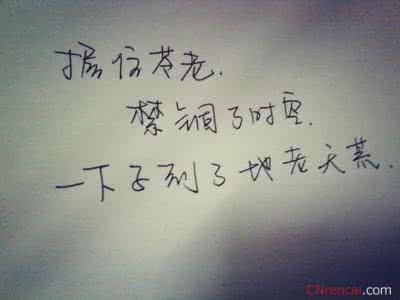 握住苍老.
禁锢了时空.
一下子到了地老天荒.
CNrencai.com